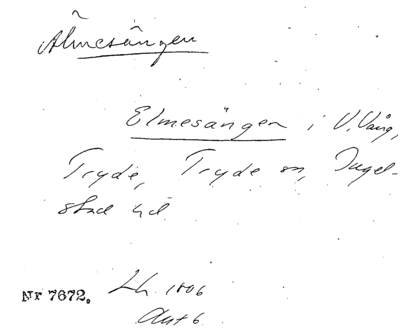 Älmesängen
Elmesängen i V. Vång,
Tryde, Tryde sn, Ingel-
stad hd
Nr 7672. Lh. 1806
Akt 6